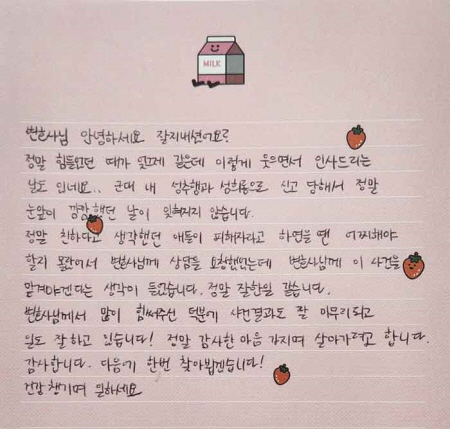 MILK
변호사님 안녕하세요 잘지내셨어요?
정말 힘들었던 때가 엊그제 같은데 이렇게 웃으면서 인사드리는
날도 있네요.. 군대 내 성추행과 성희롱으로 신고 당해서 정말
눈앞이 깜깜했던 날이 잊혀지지 않습니다.
정말 친하다고 생각했던 애들이 피해자라고 하였을 땐 어찌해야
할지 몰라서 변호사님께 상담을 요청했었는데 변호사님께 이 사건을
맡겨야겠다는 생각이 들었습니다. 정말 잘한일 같습니다.
변호사님께서 많이 힘써주신 덕분에 사건결과도 잘 마무리되고
일도 잘 하고 있습니다! 정말 감사한 마음 가지며 살아가려고 합니다.
감사합니다. 다음에 한번 찾아뵙겠습니다!
건강 챙기며 일하세요